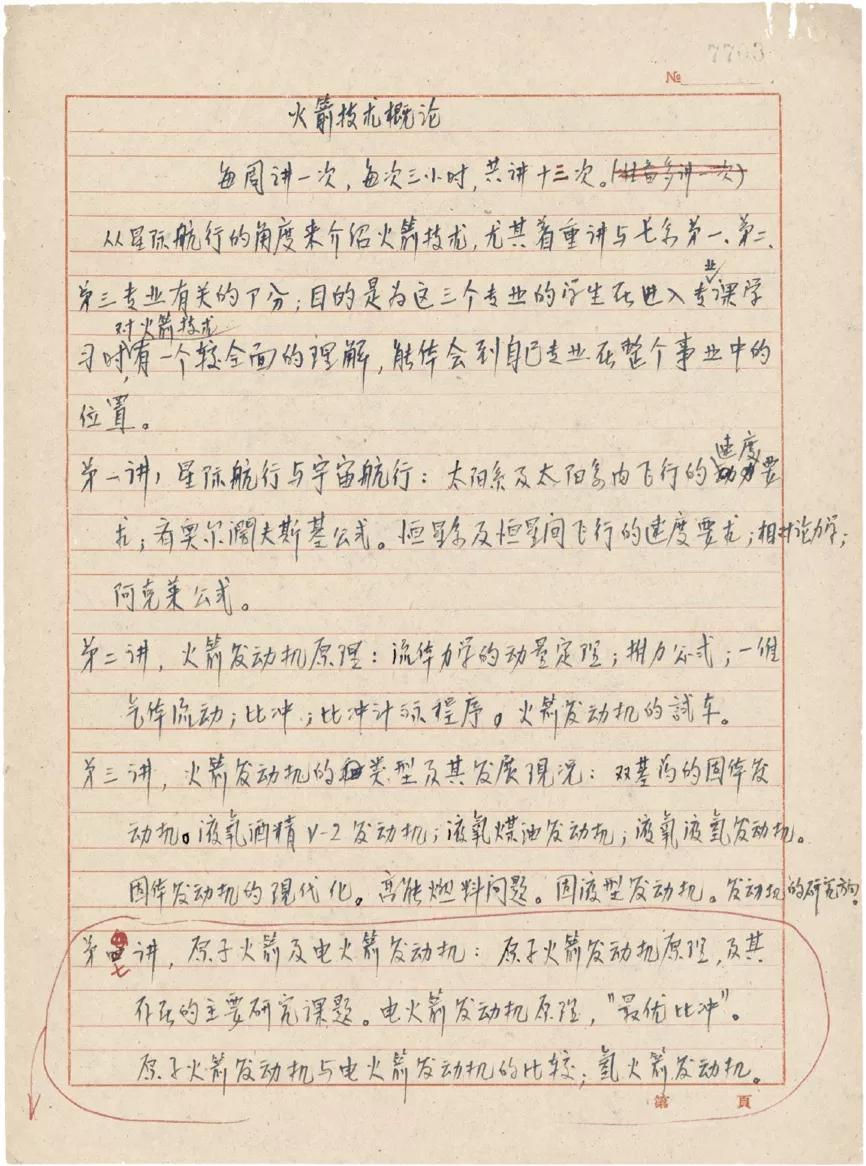 7703
№
火箭技术概论
每周讲一次，每次三小时，共讲十三次。(准备多讲一次)
从星际航行的角度来介绍火箭技术，尤其着重讲与七系第一、第二、
第三专业有关的部分；目的是为这三个专业的学生在进入专业课学
习时，对火箭技术有一个较全面的理解，能体会到自己专业在整个事业中的
位置。
第一讲，星际航行与宇宙航行：太阳系及太阳系内飞行的速度要
求；齐奥尔阔夫斯基公式。恒星系及恒星间飞行的速度要求；相对论力学；
阿克莱公式。
第二讲，火箭发动机原理：流体力学的动量定理；推力公式；一维
气体流动；比冲；比冲计祘程序。火箭发动机的試车。
第三讲，火箭发动机的类型及其发展现况：双基药的固体发
动机。液氧酒精V-2发动机；液氧煤油发动机；液氧液氢发动机。
固体发动机的现代化。高能燃料问题。固液型发动机。发动机的研究方向。
第七讲，原子火箭及电火箭发动机：原子火箭发动机原理，及其
存在的主要研究课题。电火箭发动机原理，"最优比冲"。
原子火箭发动机与电火箭发动机的比较；氢火箭发动机。
第 頁